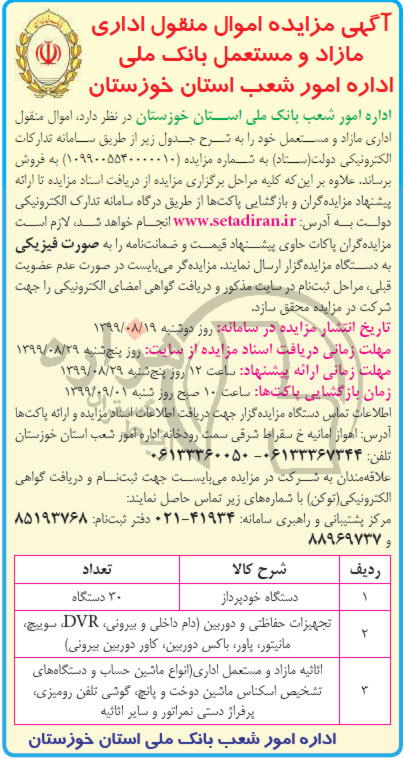 آگهی مزایده اموال منقول اداری
مازاد و مستعمل بانک ملی
اداره امور شعب استان خوزستان
اداره امور شعب بانک ملی استان خوزستان در نظر دارد، اموال منقول
اداری مازاد و مستعمل خود را به شرح جدول زیر از طریق سامانه تدارکات
الکترونیکی دولت(ستاد) به شماره مزایده (۱۰۹۹۰۰۵۵۴۰۰۰۰۰۱۰) به فروش
برساند. علاوه بر این‌که کلیه مراحل برگزاری مزایده از دریافت اسناد مزایده تا ارائه
پیشنهاد مزایده‌گران و بازگشایی پاکت‌ها از طریق درگاه سامانه تدارک الکترونیکی
دولت به آدرس: www.setadiran.ir انجام خواهد شد، لازم است
مزایده‌گران پاکات حاوی پیشنهاد قیمت و ضمانت‌نامه را به صورت فیزیکی
به دستگاه مزایده‌گزار ارسال نمایند. مزایده‌گر می‌بایست در صورت عدم عضویت
قبلی، مراحل ثبت‌نام در سایت مذکور و دریافت گواهی امضای الکترونیکی را جهت
شرکت در مزایده محقق سازد.
تاریخ انتشار مزایده در سامانه: روز دوشنبه ۱۳۹۹/۰۸/۱۹
مهلت زمانی دریافت اسناد مزایده از سایت: روز پنج‌شنبه ۱۳۹۹/۰۸/۲۹
مهلت زمانی ارائه پیشنهاد: ساعت ۱۲ روز پنج‌شنبه ۱۳۹۹/۰۸/۲۹
زمان بازگشایی پاکت‌ها: ساعت ۱۰ صبح روز شنبه ۱۳۹۹/۰۹/۰۱
اطلاعات تماس دستگاه مزایده‌گزار جهت دریافت اطلاعات اسناد مزایده و ارائه پاکت‌ها
آدرس: اهواز امانیه خ سقراط شرقی سمت رودخانه اداره امور شعب استان خوزستان
تلفن: ۰۶۱۳۳۳۶۷۳۴۴- ۰۶۱۳۳۳۶۰۰۵۰
علاقه‌مندان به شرکت در مزایده می‌بایست جهت ثبت‌نام و دریافت گواهی
الکترونیکی(توکن) با شماره‌های زیر تماس حاصل نمایند:
مرکز پشتیبانی و راهبری سامانه: ۴۱۹۳۴-۰۲۱ دفتر ثبت‌نام: ۸۵۱۹۳۷۶۸
و ۸۸۹۶۹۷۳۷
ردیف شرح کالا تعداد
۱ دستگاه خودپرداز ۳۰ دستگاه
۲ تجهیزات حفاظتی و دوربین (دام داخلی و بیرونی، DVR، سوییچ،
مانیتور، پاور، باکس دوربین، کاور دوربین بیرونی)
۳ اثاثیه مازاد و مستعمل اداری(انواع ماشین حساب و دستگاه‌های
تشخیص اسکناس ماشین دوخت و پانچ، گوشی تلفن رومیزی،
پرفراژ دستی نمراتور و سایر اثاثیه
اداره امور شعب بانک ملی استان خوزستان